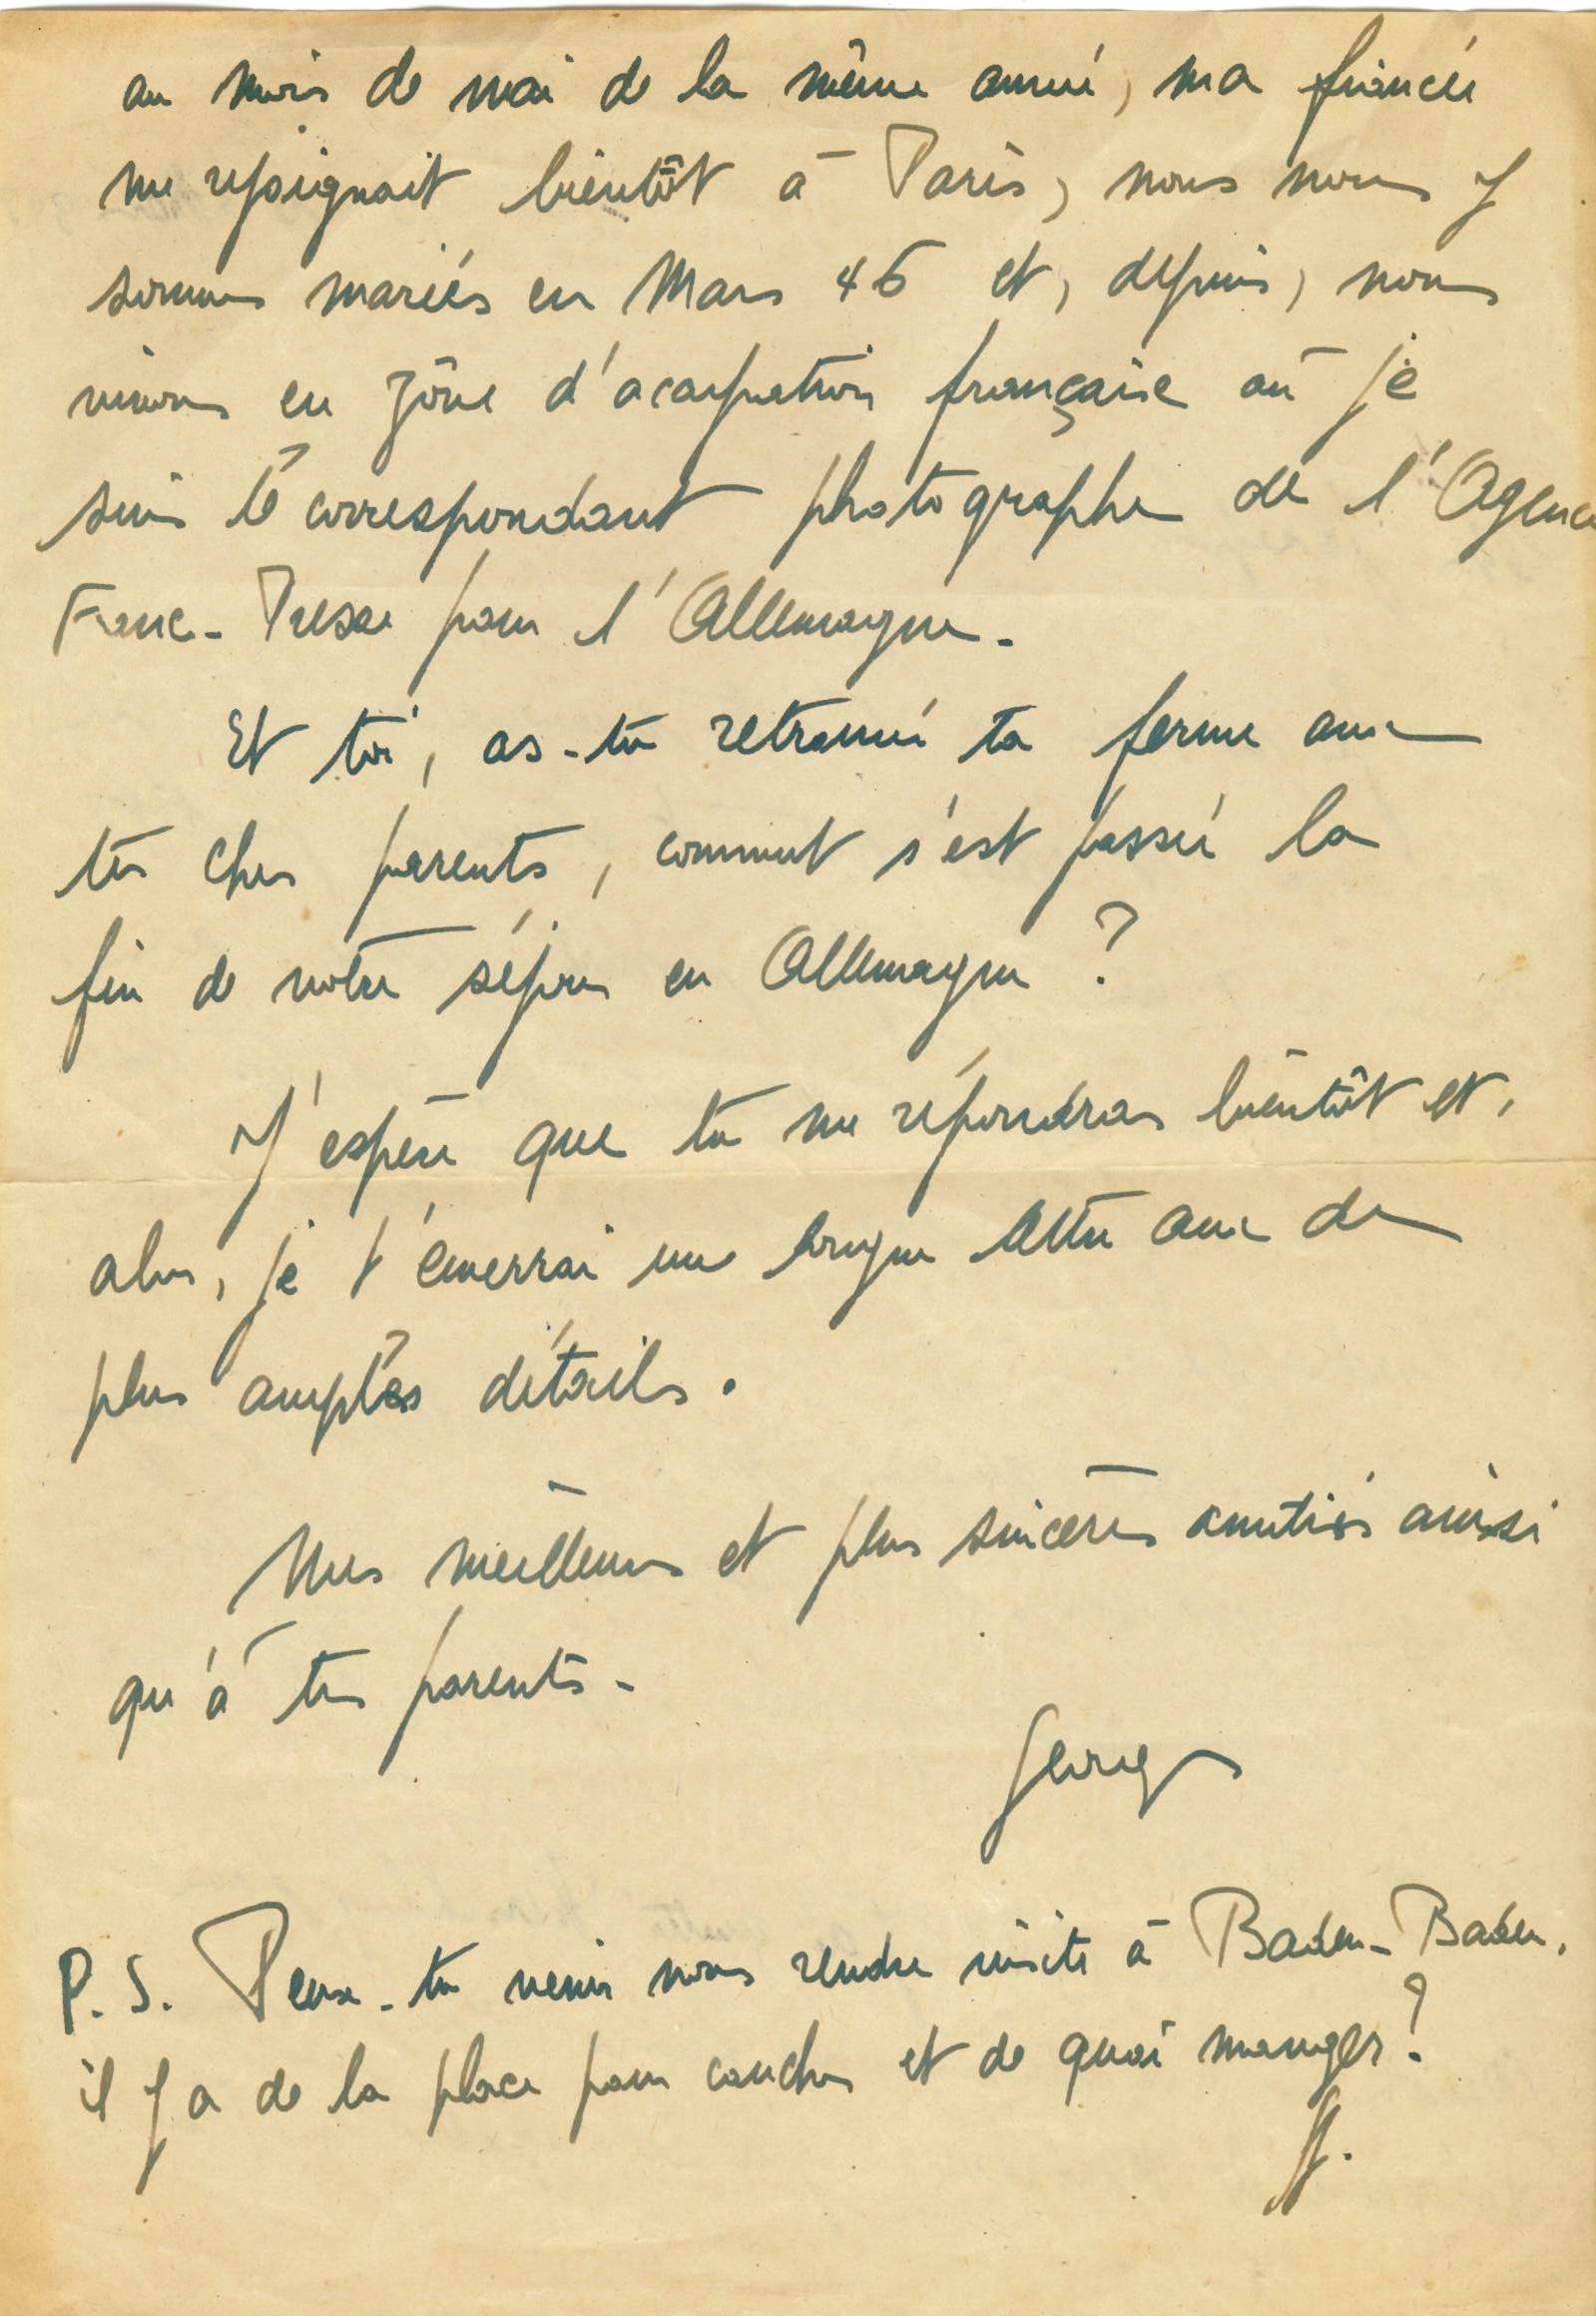 au mois de mai de la même année, ma fiancée
me rejoignait bientôt à Paris, nous nous y
sommes mariés en Mars 46 et, depuis, nous
vivons en zône d'occupation française où je
suis le correspondant photographe de l'Agence
France-Presse pour l'Allemagne.
Et toi, as-tu retrouvé ta ferme avec
tes chers parents, comment s'est passé la
fin de notre séjour en Allemagne ?
J'espère que tu me répondras bientôt et,
alors, je t'enverrai une longue lettre avec de
plus amples détails.
Mes meilleures et plus sincères amitiés ainsi
qu'à tes parents.
Georges
P.S. Peux-tu venir nous rendre visite à Baden-Baden,
il y a de la place pour coucher et de quoi manger ?